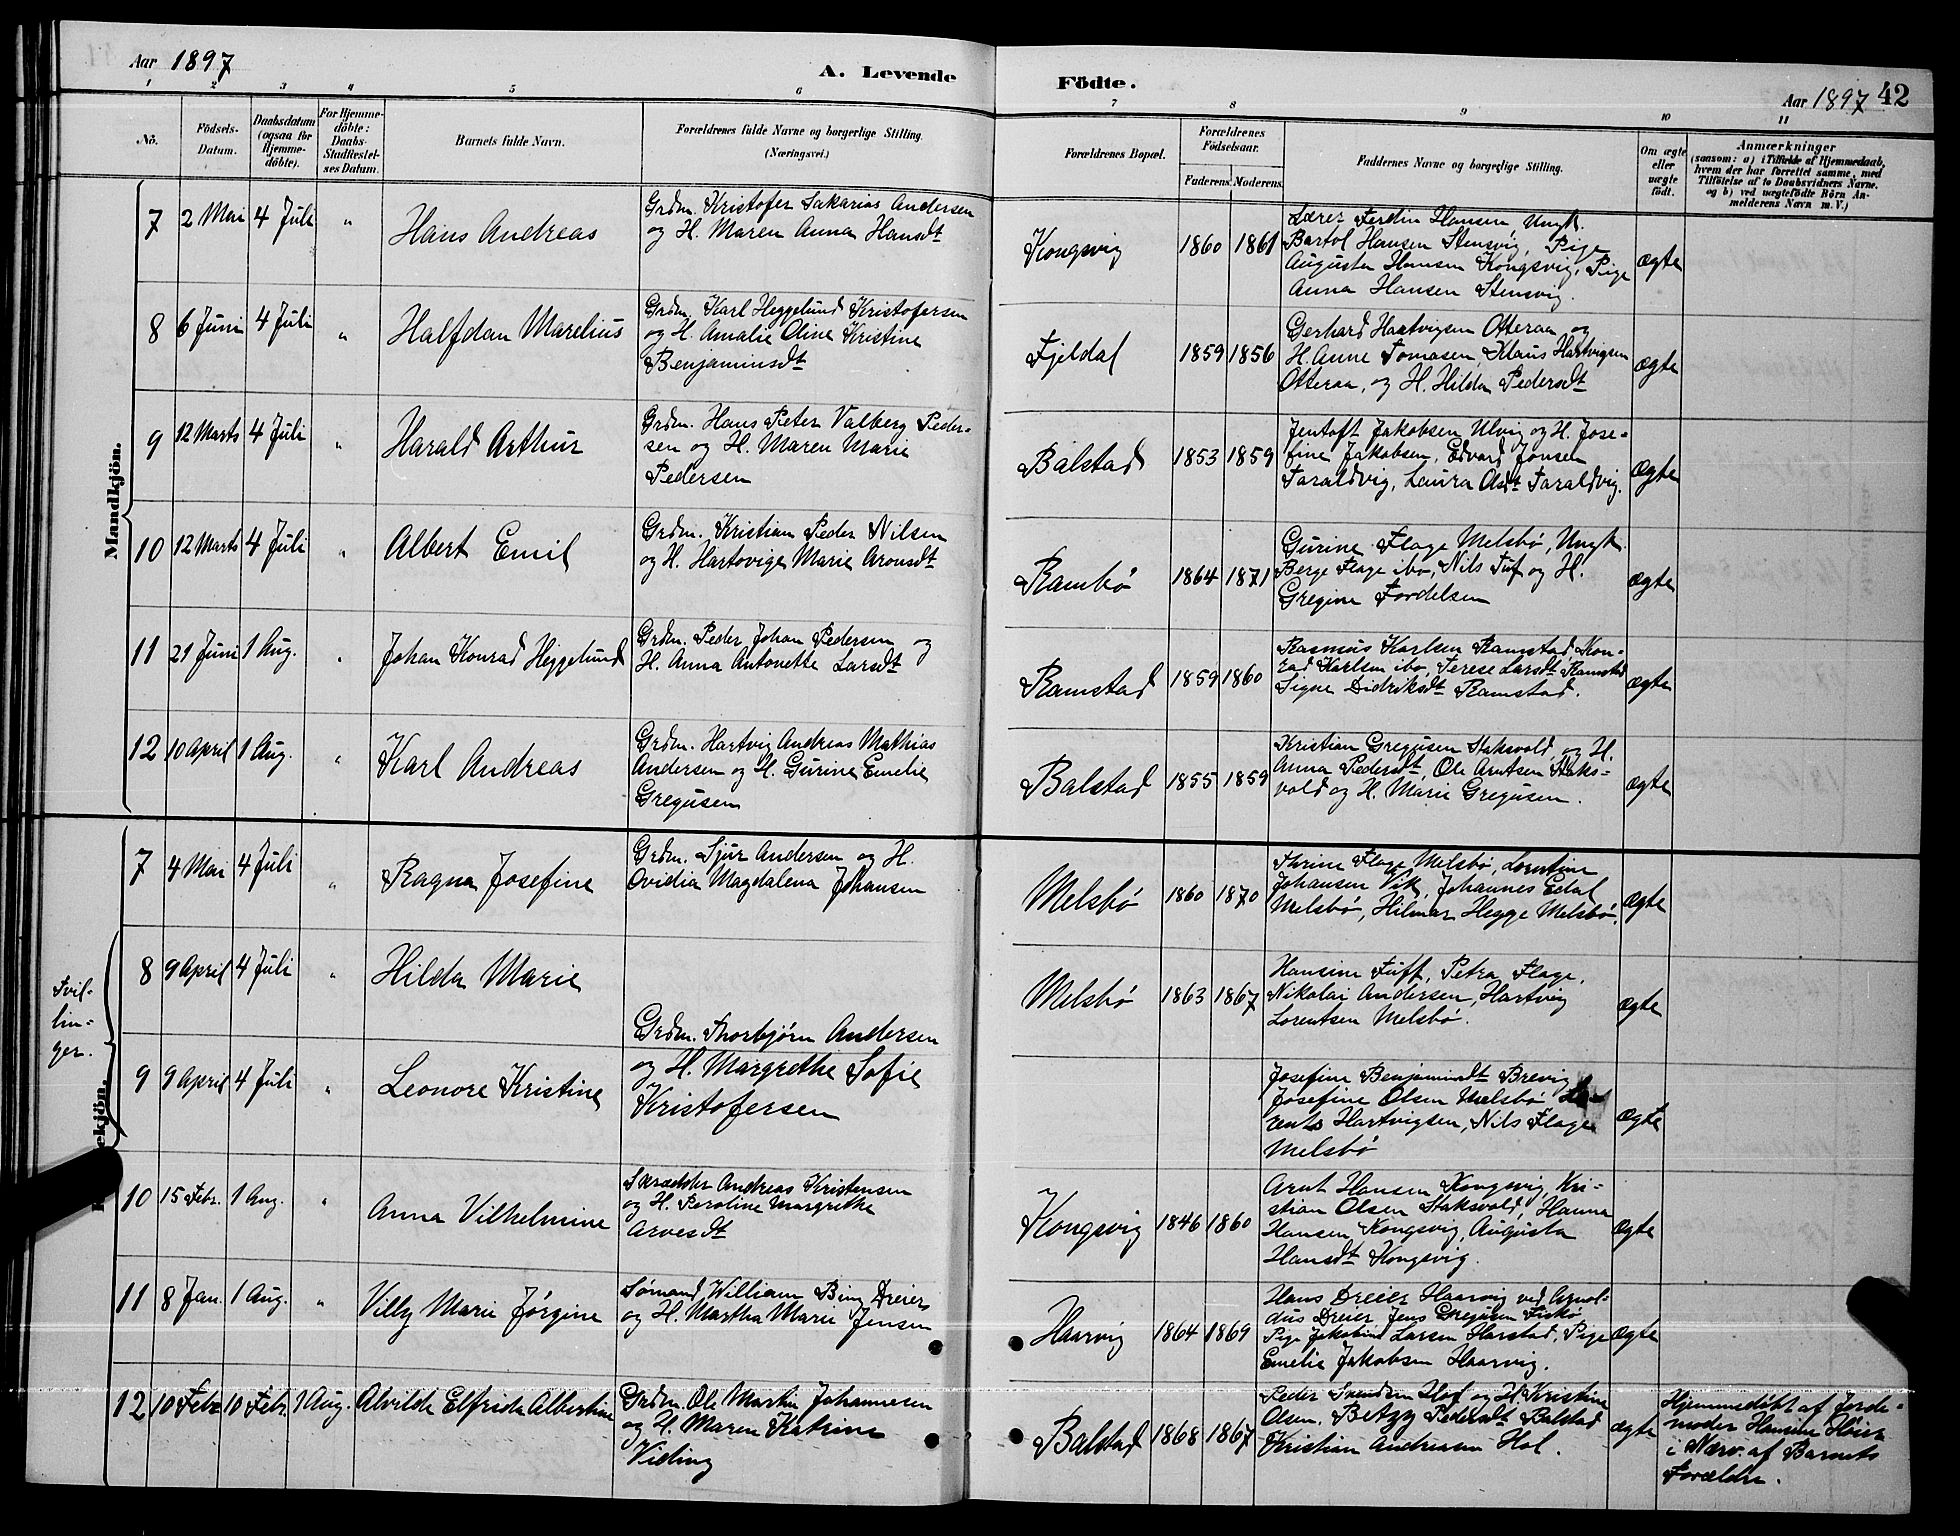 Aar 1897
A. Levende
Födte.
Aar 1897 42
1 2 3 4 5 6
7 8 9 10 11
No.
Födsels-Datum.
Daabsdatum (ogsaa for Hjemmedöbte).
For Hjemmedöbte: Daabs-Stadfæstelses Datum.
Barnets fulde Navn.
Forældrenes fulde Navne og borgerlige Stilling.
(Næringsvei.)
Forældrenes Bopæl.
Forældrenes Födselsaar.
Faderens. Moderens.
Faddernes Navne og borgerlige Stilling.
Om ægte eller uægte födt.
Anmærkninger
(saasom: a) i Tilfælde af Hjemmedaab,
hvem der har forrettet samme, med
Tilföielse af to Daabsvidners Navne,
og b) ved uægtefödte Börn An-
melderens Navn m. V.)
Mandkjön.
7 2 Mai 4 Juli " Hans Andreas
Grdm. Kristofer Sakarias Andersen
og H. Maren Anna Hansdt
Kongsvig 1860 1861
Lærer Ferdin Hansen, Ungk.
Bartol Hansen Stensvig, Pige
Augusta Hansen Kongsvig, Pige
Anna Hansen Stensvig.
ægte
8 6 Juni 4 Juli " Halfdan Marelius
Grdm. Karl Heggelund Kristofersen
og H. Amalie Oline Kristine
Benjaminsdt
Fjeldal 1859 1856
Gerhard Hartvigsen Otteraa og
H. Anne Tomasen, Klaus Hartvigsen
Otteraa, og H. Hilda Pedersdt
ægte
9 12 Marts 4 Juli " Harald Arthur
Grdm. Hans Peter Valberg Peder-
sen og H. Maren Marie
Pedersen
Balstad 1853 1859
Jentoft Jakobsen Ulvig og H. Jose-
fine Jakobsen, Edvard Jonsen
Taraldvig, Laura Olsdt Taraldvig.
ægte
10 12 Marts 4 Juli " Albert Emil
Grdm. Kristian Peder Nilsen
og H. Hartovige Marie Aronsdt
Rambö 1864 1871
Gurine Flage Melsbö, Ungk.
Berge Flage ibo, Nils Tuf og H.
Gregine Fordelsen
ægte
11 21 Juni 1 Aug. " Johan Konrad Heggelund
Grdm. Peder Johan Pedersen og
H. Anna Antonette Larsdt
Ramstad 1859 1860
Rasmus Karlsen Ramstad Kon-
rad Karlsen ibo, Terese Larsdt Ramstad
Signe Didriksdt Ramstad.
ægte
12 10 April 1 Aug. " Karl Andreas
Grdm. Hartvig Andreas Mathias
Andersen og H. Gurine Emelie
Gregusen
Balstad 1855 1859
Kristian Gregusen Staksvold, og H.
Anna Pedersdt, Ole Arntsen Staks-
vold og H. Marie Gregusen.
ægte
7 4 Mai 4 Juli " Ragna Josefine
Grdm. Sjur Andersen og H.
Ovidia Magdalena Johansen
Melsbö 1860 1870
Thrine Flage Melsbö, Lorentine
Johansen Vik, Johannes Edal
Melsbö, Hilmar Hegge Melsbö.
ægte
Tvil-
lin-
ger.
8 9 April 4 Juli " Hilda Marie
Melsbö 1863 1867
Hansine Tuff, Petra Flage,
Nikolai Andersen, Hartvig
Lorentsen Melsbö.
ægte
Grdm. Thorbjörn Andersen
og H. Margrethe Sofie
Kristofersen
9 9 April 4 Juli " Leonore Kristine
Josefine Benjamindt Brevig
Josefine Olsen Melsbö Lo-
rents Hartvigsen, Nils Flage
Melsbö
ægte
10 15 Febr. 1 Aug. " Anna Vilhelmine
Skrædder Andreas Kristensen
og H. Peroline Margrethe
Arvesdt
Kongsvig 1846 1860
Arnt Hansen Kongsvig, Kri-
stian Olsen Staksvold, Hanna
Hansen Kongsvig, Augusta
Hansdt Kongsvig.
ægte
11 8 Jan. 1 Aug. " Villy Marie Jörgine
Sömand, William Bing Dreier
og H. Martha Marie Jensen
Haarvig 1864 1869
Hans Dreier Haarvig ved Arnol-
dus Dreier, Jens Gregusen Fiskö
Pige Jakobine Larsen Harstad, Pige
Emelie Jakobsen Haarvig.
ægte
12 10 Febr 10 Febr. 1 Aug. Alvilde Elfrida Albertine
Grdm. Ole Martin Johannesen
og H. Maren Katrine
Viding
Balstad 1868 1867
Peder Svendsen Hol og H. Kristine
Olsen. Betzy Pedersdt Balstad
Kristian Andreasen Hol.
ægte
Hjemmedöbt af Jorde-
moder Hansine Höier
i Nærv. af Barnets
Forældre.